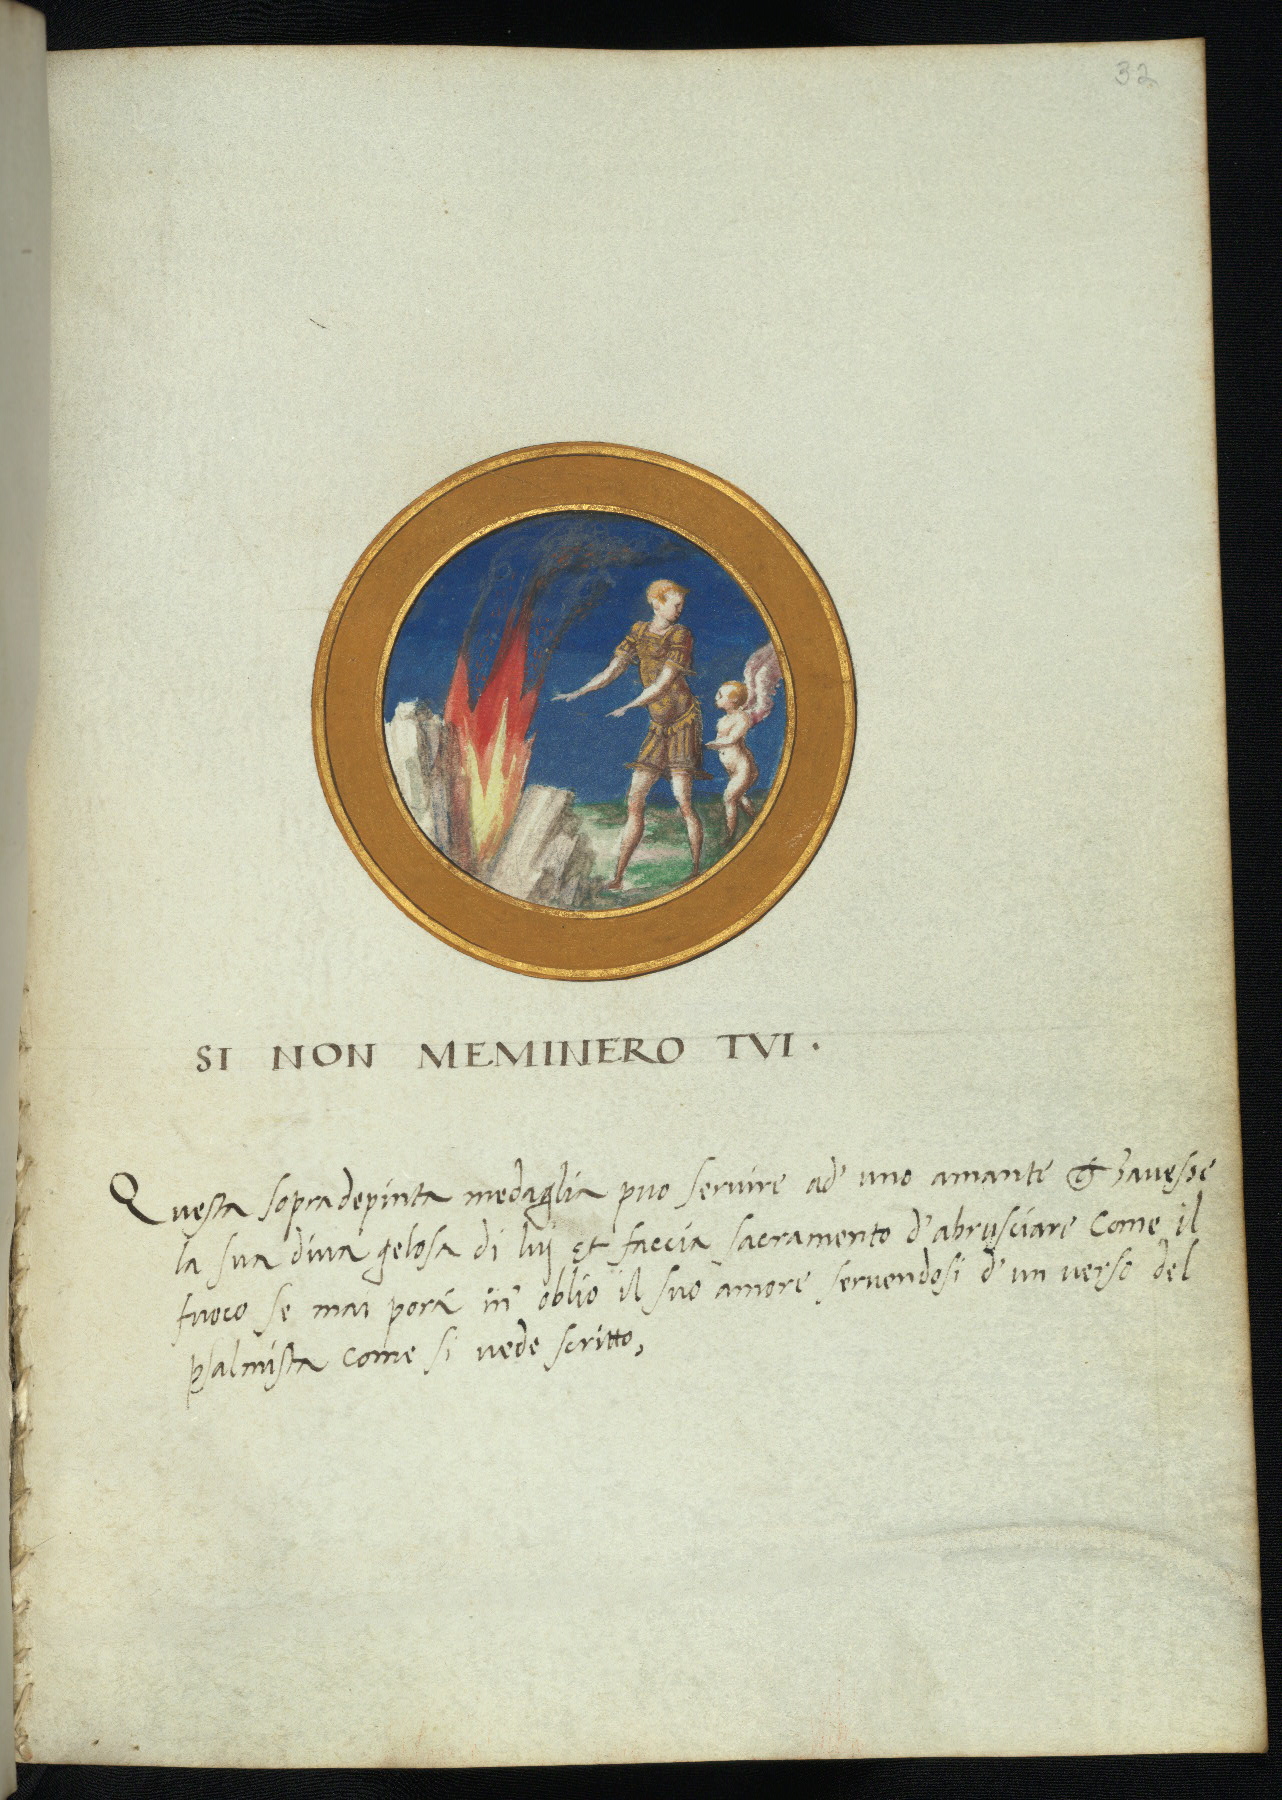 32
SI NON MEMINERO TVI .
Questa sopradepinta medaglia puo servire ad' uno amante ch' havesse
la sua diva gelosa di lui et faccia sacramento d' abrusciare come il
fuoco se mai porà in oblio il suo amore servendosi d' un verso del
psalmista come si vede scritto,